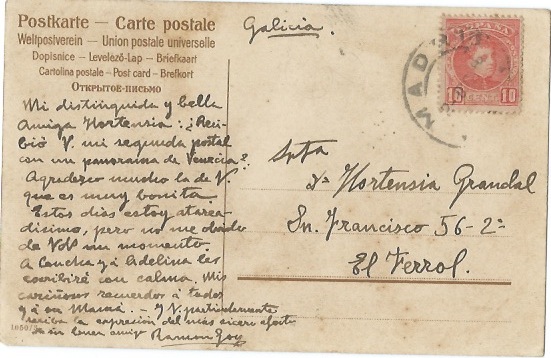 Postkarte — Carte postale
Weltpostverein — Union postale universelle
Dopisnice — Levelező-Lap — Briefkaart
Cartolina postale — Post card — Brefkort
Открытое-письмо
Galicia.
MADRID
10 CENT. 10
Mi distinguida y bella
Amiga Hortensia: ¿Reci-
bió V. mi segunda postal
con un panorama de Venecia?
Agradezco mucho la de V.
que es muy bonita.
Estos días estoy atarea-
disimo, pero no me olvido
de Vds un momento.
A Concha y á Adelina les
escribiré con calma. Mis
cariñosos recuerdos á todos
y á su Mamá. — Y V. particularmente
reciba la expresión del más sincero afecto
de su buen amigo Ramon
Srta
Dª Hortensia Grandal
Sn. Francisco 56-2º
El Ferrol.